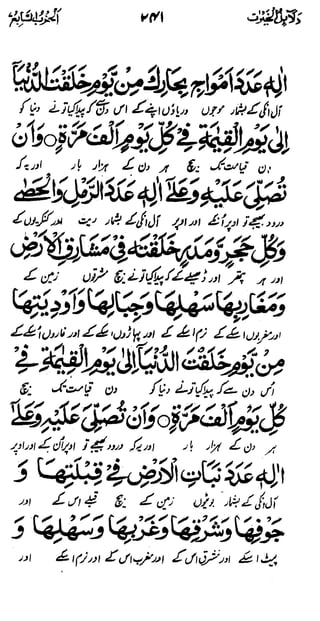 دلائل الخیرات ۲۴۱ الحزب السابع
اٰلِهٖ عَدَدَ اَمْوَاجِ بِحَارِكَ مِنْ يَّوْمِ خَلَقْتَ الدُّنْيَا
آل انکی کے بشمار موجوں دریاؤں اپنے کے اس دن سے کہ پیدا کیا تونے دنیا کو
اِلٰى يَوْمِ الْقِيٰمَةِ فِيْ كُلِّ يَوْمٍ اَلْفَ مَرَّةٍ ○ وَاَنْ
دن قیامت تک بیچ ہر دن کے ہزار بار اور یہ کہ
تُصَلِّيَ عَلَيْهِ وَعَلٰٓى اٰلِهٖ عَدَدَ الرَّمْلِ وَالْحَصٰى
درود بھیجے تو اوپر اُنکے اور اوپر آل انکی کے بشمار ریت اور کنکریوں کے
وَكُلِّ حَجَرٍ وَّمَدَرٍ خَلَقْتَهٗ فِيْ مَشَارِقِ الْاَرْضِ
اور ہر پتھر اور ڈھیلے کے کہ پیدا کیا تونے بیچ مشرقوں زمین کے
وَمَغَارِبِهَا سَهْلِهَا وَجِبَالِهَا وَاَوْدِيَتِهَا
اور مغربوں اسکے کے نرم اسکے اور پہاڑوں اسکے کے اور غاروں اسکے کے
مِنْ يَّوْمِ خَلَقْتَ الدُّنْيَآ اِلٰى يَوْمِ الْقِيٰمَةِ فِيْ
اُس دن سے کہ پیدا کیا تونے دنیا کو دن قیامت تک بیچ
كُلِّ يَوْمٍ اَلْفَ مَرَّةٍ ○ وَاَنْ تُصَلِّيَ عَلَيْهِ وَعَلٰٓى
ہر دن کے ہزار بار اور یہ کہ درود بھیجے تو اوپر اُن کے اور اوپر
اٰلِهٖ عَدَدَ نَبَاتِ الْاَرْضِ فِيْ قِبْلَتِهَا وَ
آل انکی کے بشمار بوٹیوں زمین کے بیچ قبلے اس کے اور
جَوْفِهَا وَشَرْقِهَا وَغَرْبِهَا وَسَهْلِهَا وَ
پیٹ اسکے اور مشرق اس کے اور مغرب اس کے اور نرم اسکے اور